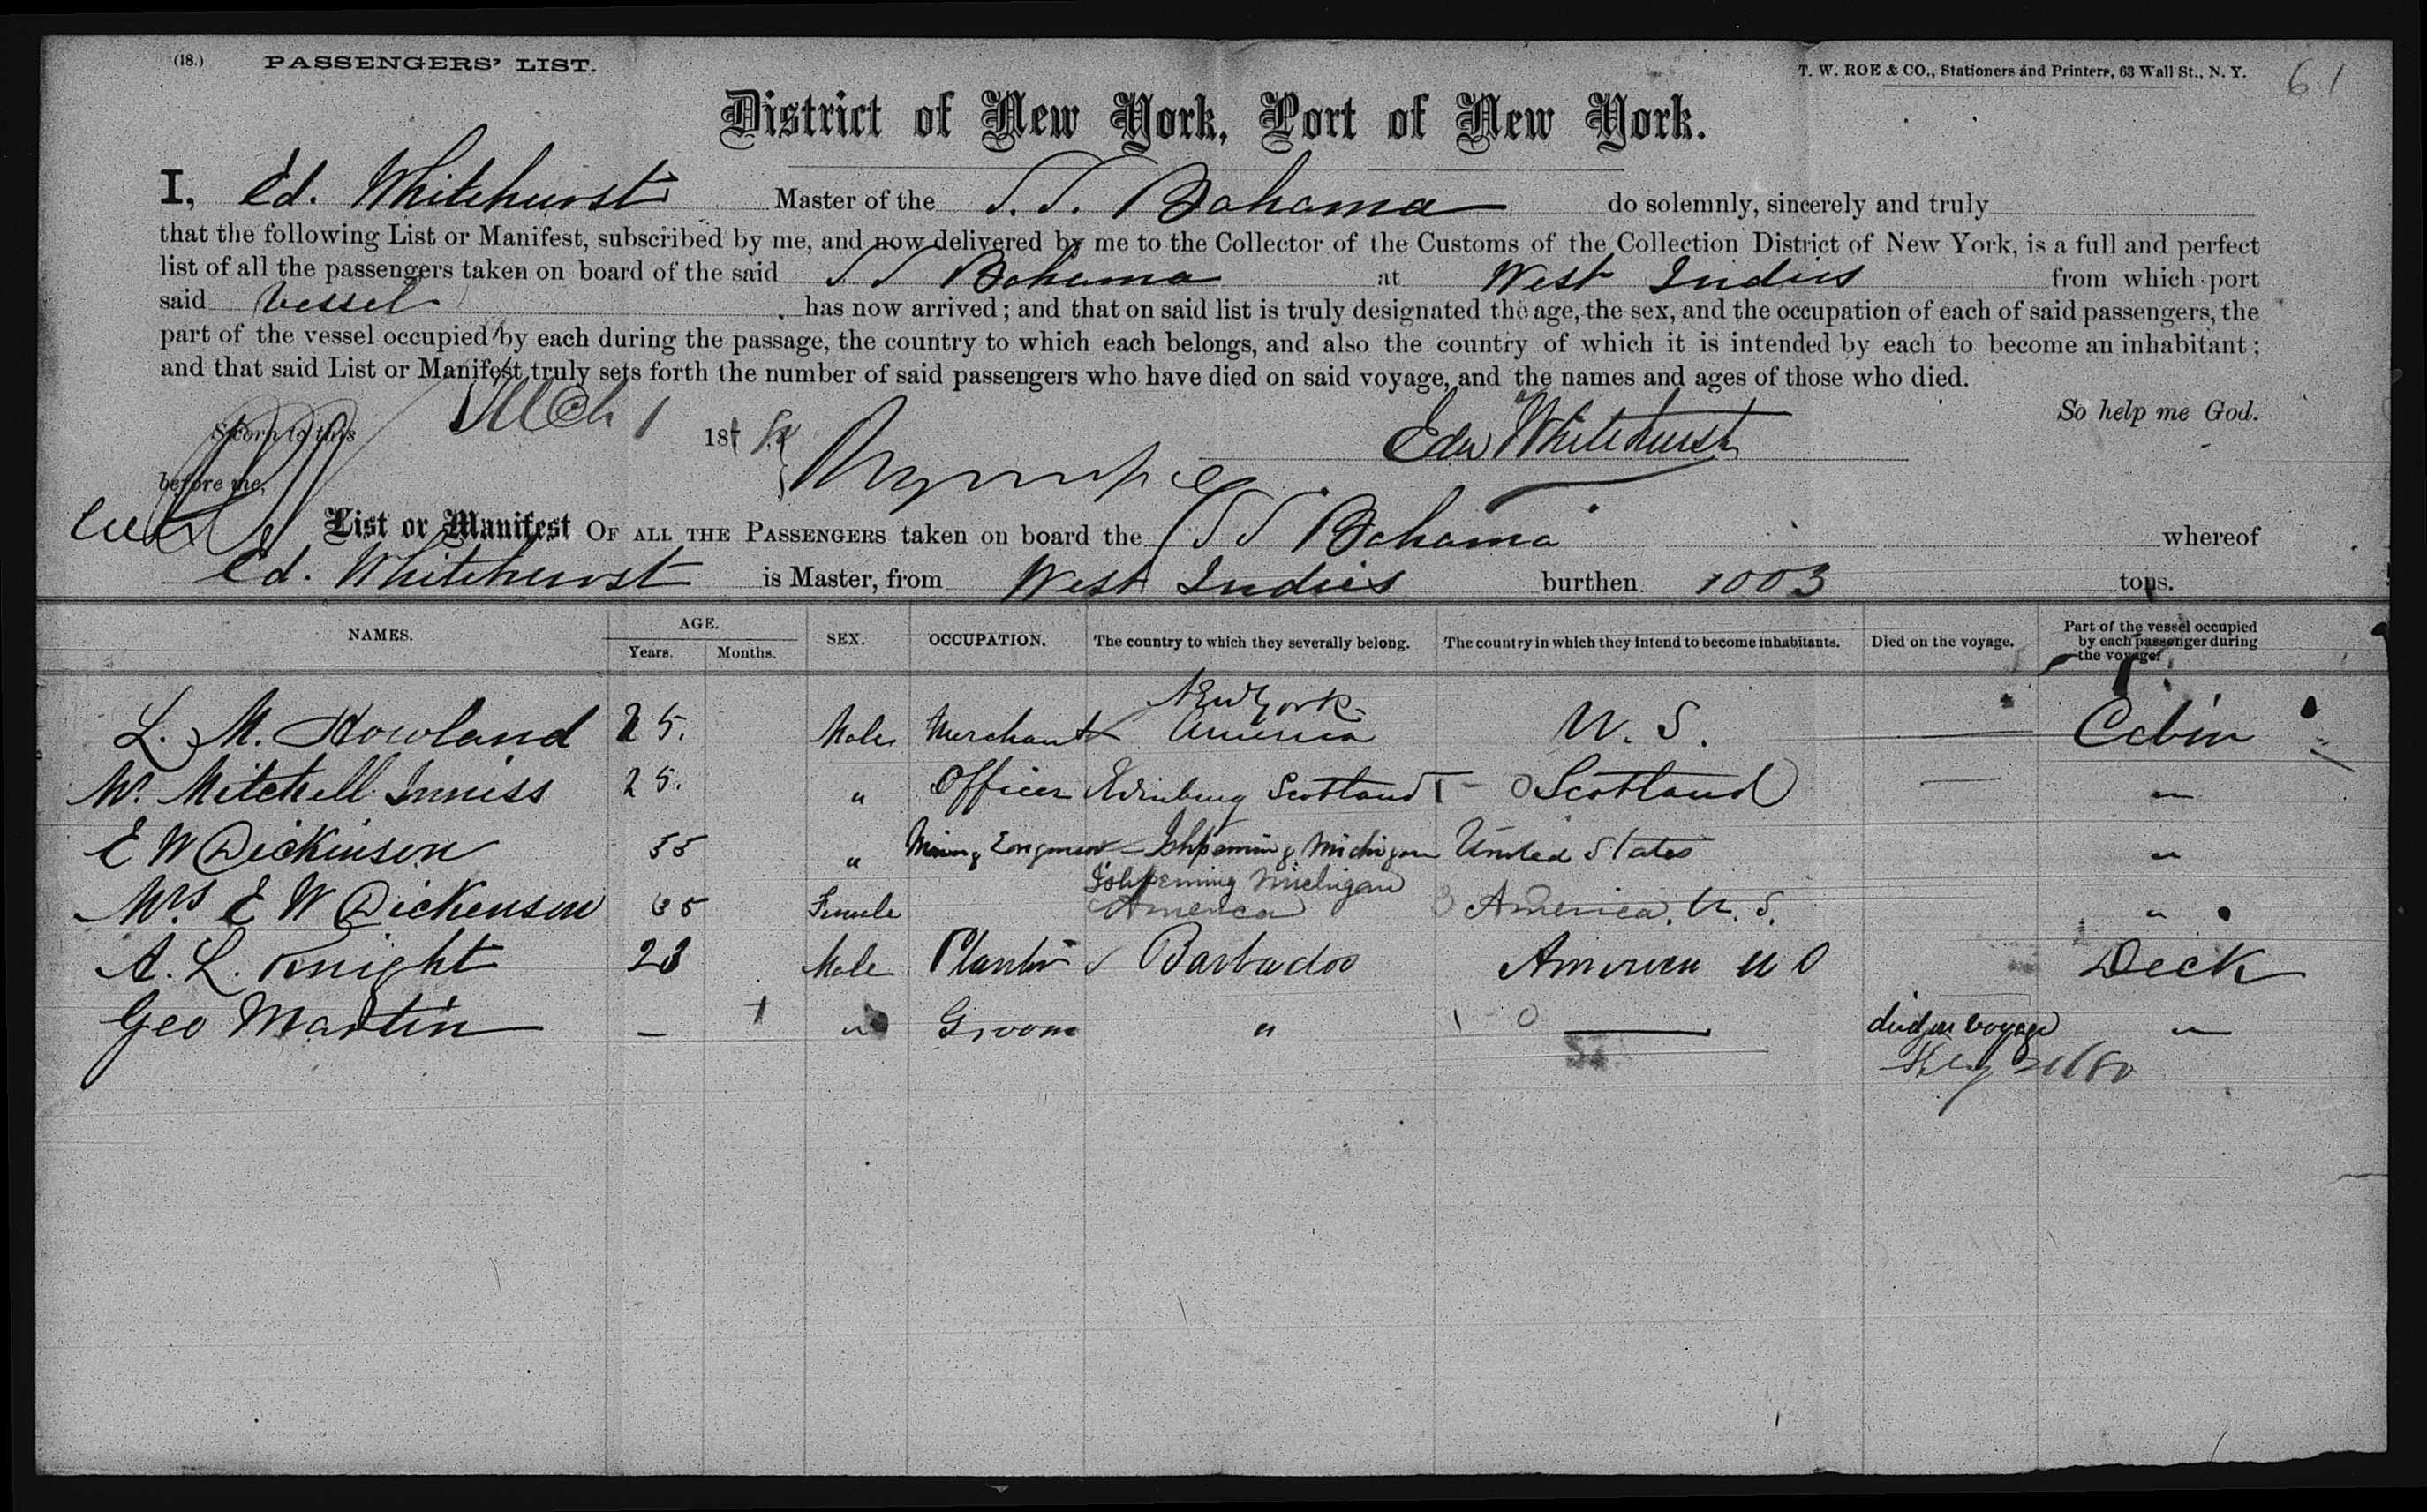 (18.) PASSENGERS' LIST. T. W. ROE & CO., Stationers and Printers, 63 Wall St., N. Y. 61
District of New York, Port of New York.
I, Ed. Whitehurst Master of the S.S. Bahama do solemnly, sincerely and truly
that the following List or Manifest, subscribed by me, and now delivered by me to the Collector of the Customs of the Collection District of New York, is a full and perfect
list of all the passengers taken on board of the said S S Bahama at West Indies from which port
said Vessel has now arrived; and that on said list is truly designated the age, the sex, and the occupation of each of said passengers, the
part of the vessel occupied by each during the passage, the country to which each belongs, and also the country of which it is intended by each to become an inhabitant;
and that said List or Manifest truly sets forth the number of said passengers who have died on said voyage, and the names and ages of those who died.
So help me God.
Sworn to this Mch 1 18 Edw Whitehurst
before me,
List or Manifest OF ALL THE PASSENGERS taken on board the S S Bahama whereof
Ed. Whitehurst is Master, from West Indies burthen 1003 tons.
NAMES. AGE. Years. Months. SEX. OCCUPATION. The country to which they severally belong. The country in which they intend to become inhabitants. Died on the voyage. Part of the vessel occupied by each passenger during the voyage.
New York
L. M. Howland 25. Male Merchant America U. S. — Cabin
W. Mitchell Inniss 25. " Officer Edinburg Scotland Scotland — "
E W Dickinson 55 " Mining Engineer Ishpeming Michigan United States "
Ishpeming Michigan
Mrs E W Dickenson 35 Female America America. U. S. "
A. L. Knight 23 Male Planter Barbados America U S Deck
Geo Martin — " Groom " — died on voyage "